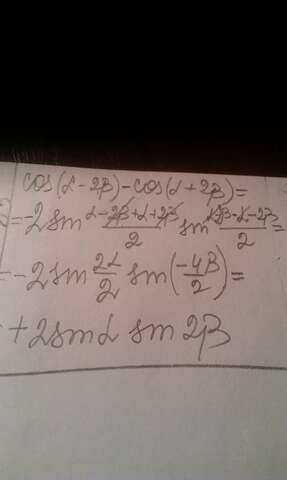 cos(α-2β)-cos(α+2β)=
=-2sin (α-2β+α+2β)/2 sin (α-2β-α-2β)/2 =
=-2sin 2α/2 sin(-4β/2)=
+2sinα sin2β